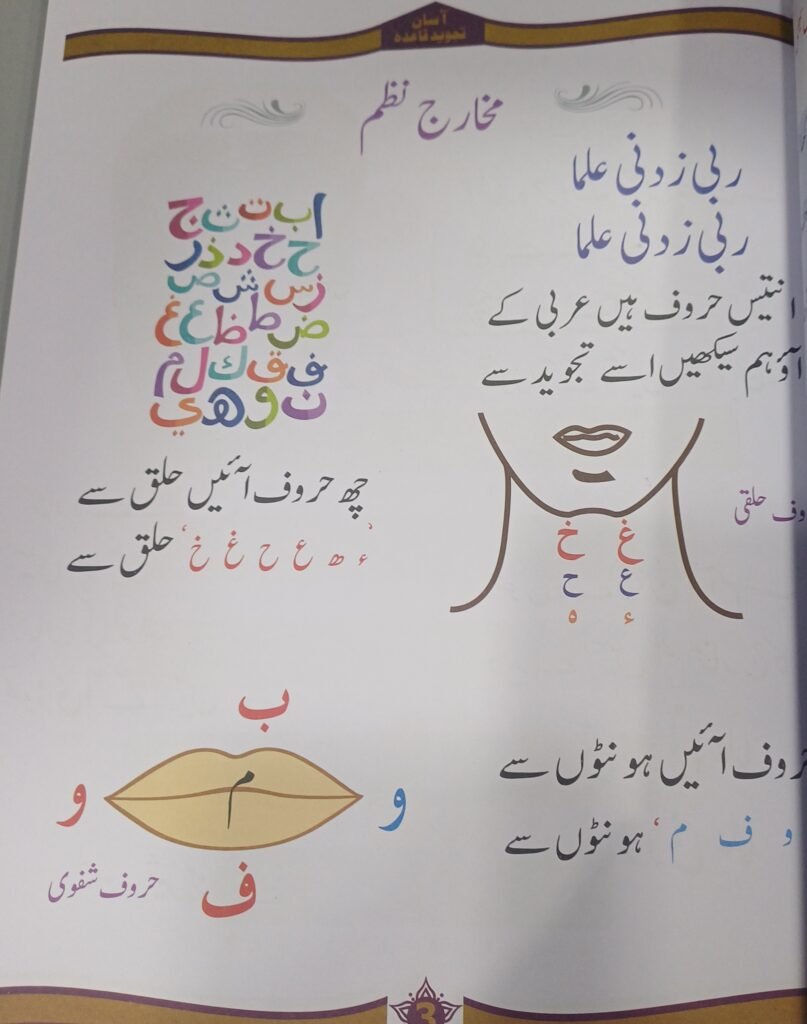 آسان
تجوید قاعدہ
مخارج نظم
ربی زدنی علما
ربی زدنی علما
انتیس حروف ہیں عربی کے
آؤ ہم سیکھیں اسے تجوید سے
ا ب ت ث ج
ح خ د ذ ر
ز س ش ص
ض ط ظ ع غ
ف ق ك ل م
ن و ه ي
حلقی
غ خ
ع ح
ء ہ
چھ حروف آئیں حلق سے
ء ھ ع ح غ خ، حلق سے
ب
و م و
ف
حروف شفوی
حروف آئیں ہونٹوں سے
و ف م، ہونٹوں سے
3